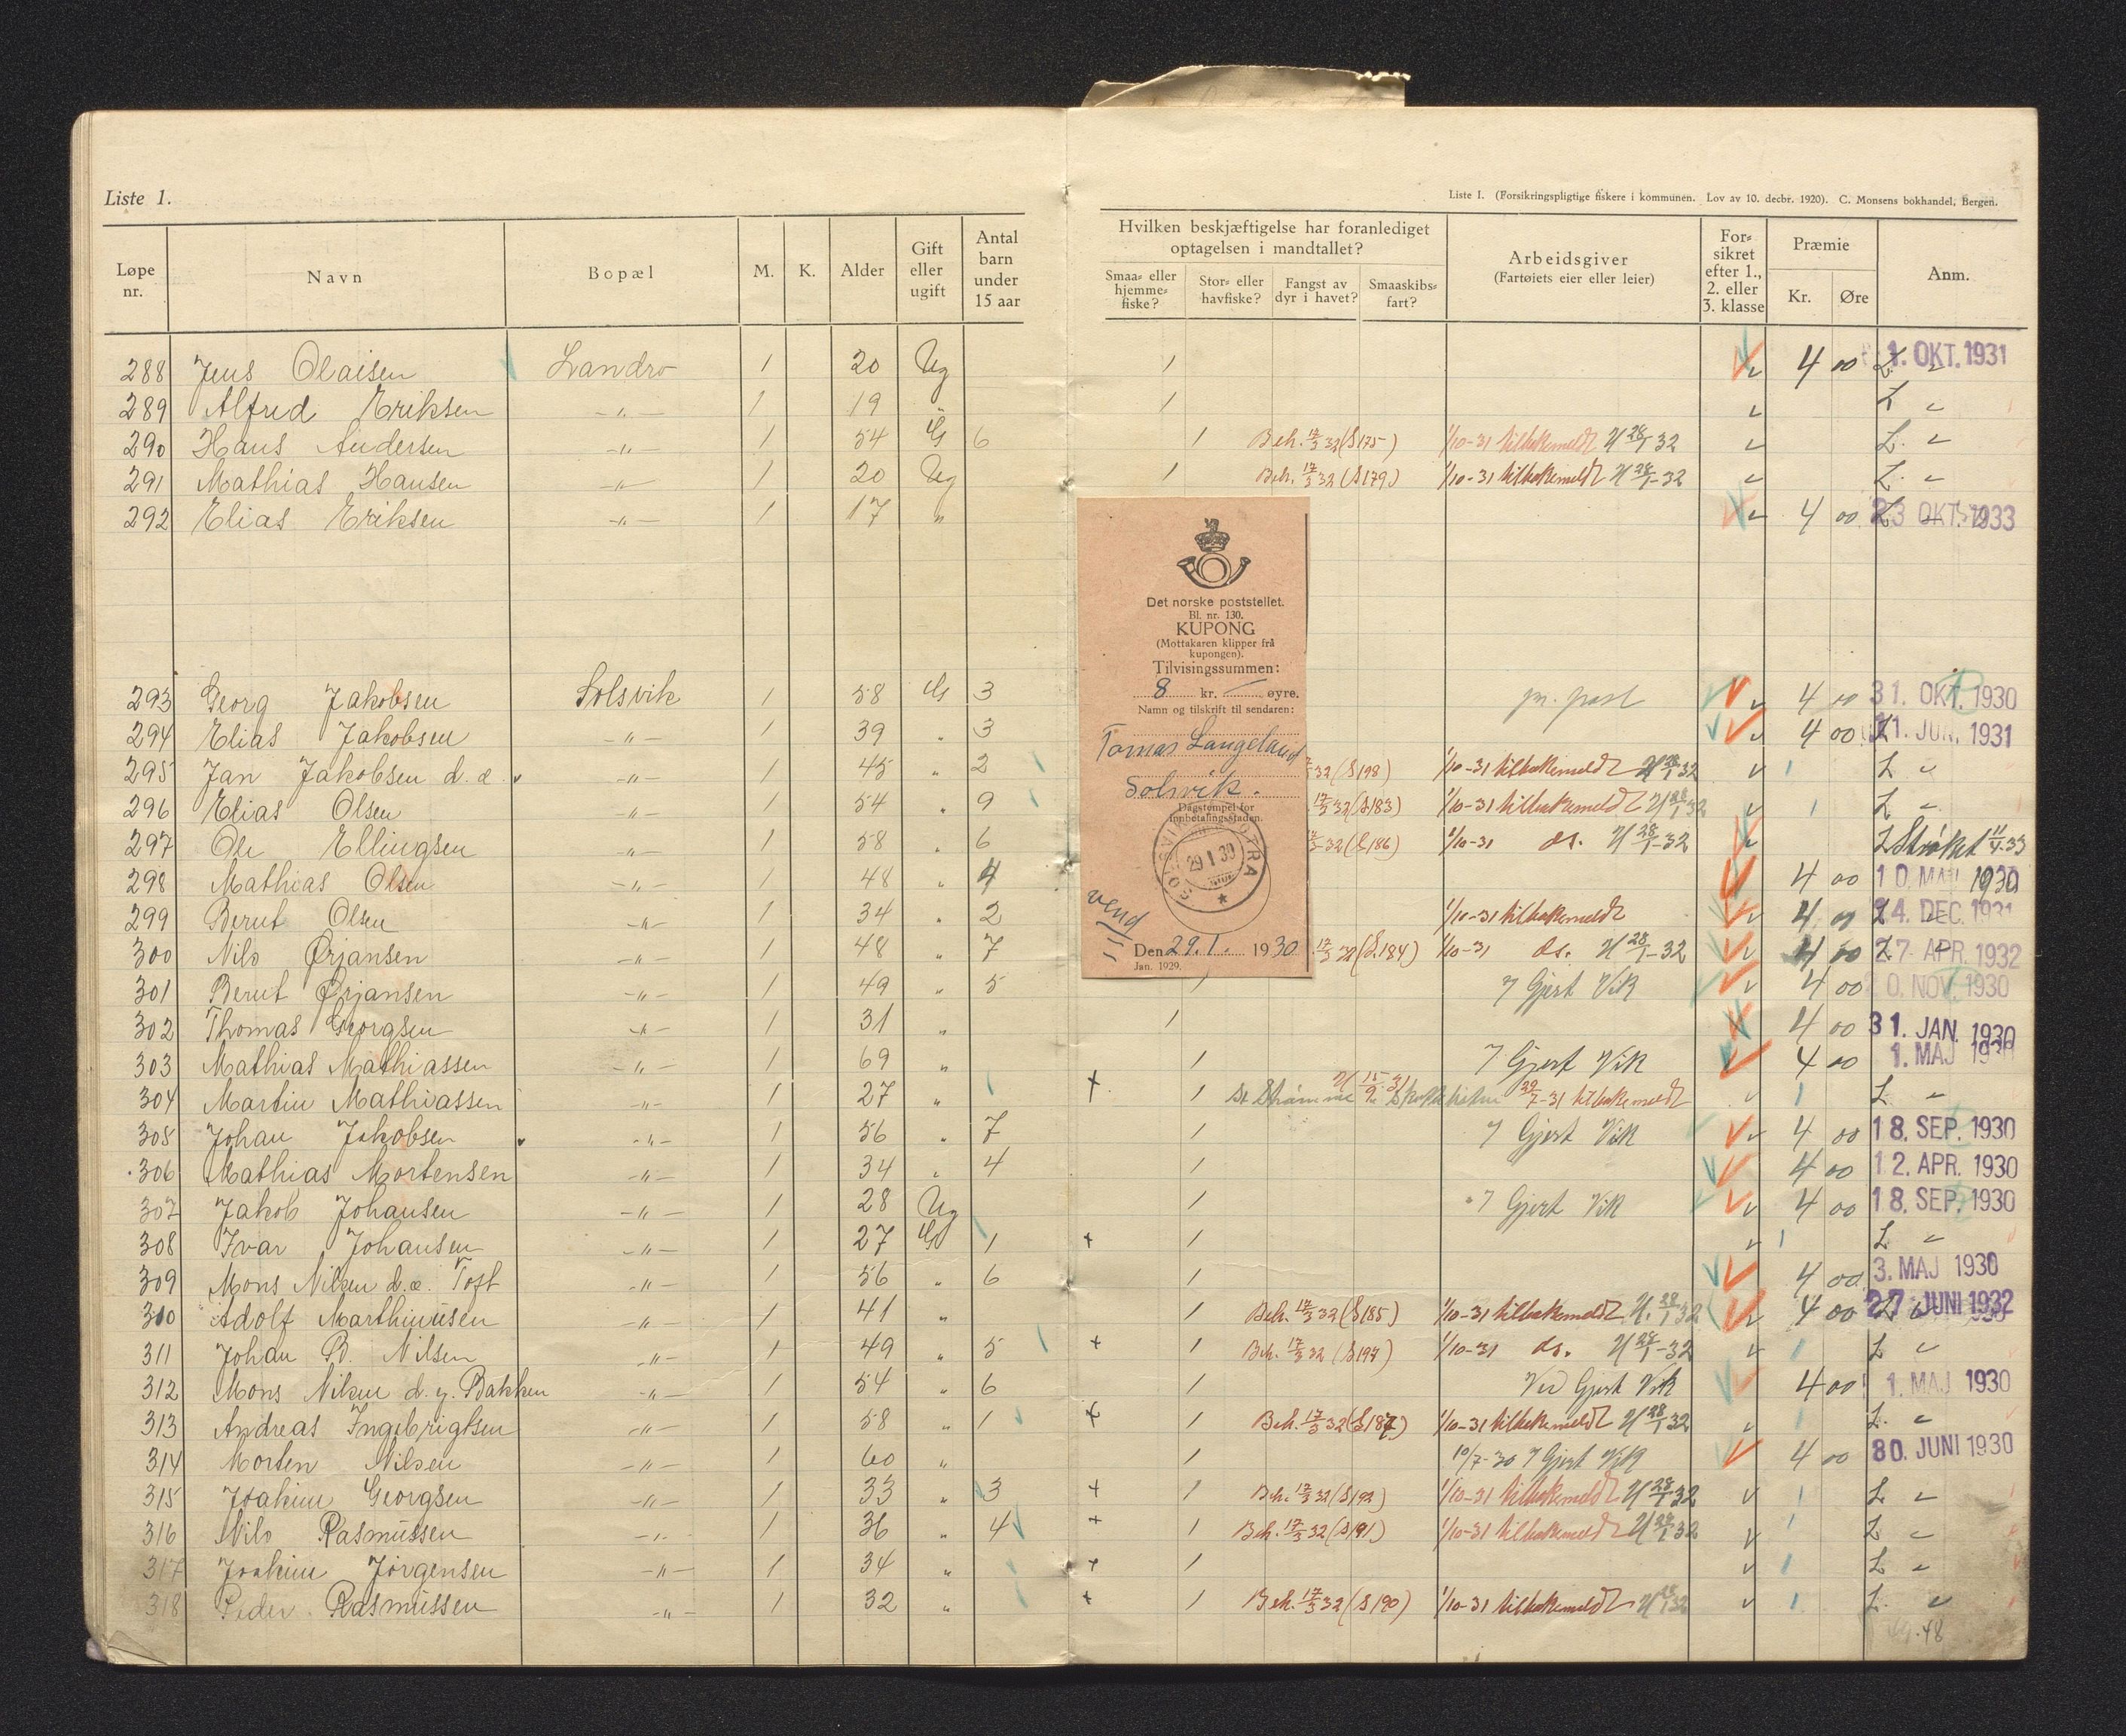 Liste 1.
Liste I. (Forsikringspligtige fiskere i kommunen. Lov av 10. decbr. 1920). C. Monsens bokhandel, Bergen.
Løpe nr. Navn Bopæl M. K. Alder Gift eller ugift Antal barn under 15 aar
Hvilken beskjæftigelse har foranlediget optagelsen i mandtallet? Arbeidsgiver (Fartøiets eier eller leier) For-sikret efter 1., 2. eller 3. klasse Præmie Anm.
Smaa- eller hjemme-fiske? Stor- eller havfiske? Fangst av dyr i havet? Smaaskibs-fart? Kr. Øre
288 Jens Olaisen Landro 1 20 Ug 1 4 00 1. OKT. 1931
289 Alfred Eriksen -"- 1 19 " 1 L
290 Hans Andersen -"- 1 54 G 6 1 Beh. 17/3 32 (S175) 1/10-31 tilbakemeldt 28/1-32 L
291 Mathias Hansen -"- 1 20 Ug 1 Beh. 17/3 32 (S179) 1/10-31 tilbakemeldt 28/1-32 L
292 Elias Eriksen -"- 1 17 " 4 00 L 23 OKT. 1933
293 Georg Jakobsen Solsvik 1 58 G 3 pr. post 4 00 31. OKT. 1930
294 Elias Jakobsen -"- 1 39 " 3 4 00 11. JUN. 1931
295 Jan Jakobsen d. e. -"- 1 45 " 2 32 (S198) 1/10-31 tilbakemeldt 28/1 32 L
296 Elias Olsen -"- 1 54 " 9 17/3 32 (S183) 1/10-31 tilbakemeldt 28/1 32 L
297 Ole Ellingsen -"- 1 58 " 6 32 (S186) 1/10-31 ds. 28/1-32 L Strøket 11/4-33
298 Mathias Olsen -"- 1 48 " 4 4 00 10. MAI 1930
299 Berut Olsen -"- 1 34 " 2 1/10-31 tilbakemeldt 4 00 24. DEC. 1931
300 Nils Ørjansen -"- 1 48 " 7 17/3 32 (S.184) 1/10-31 ds. 28/1-32 4 00 27. APR. 1932
301 Berut Ørjansen -"- 1 49 " 5 1 Gjert Vik 4 00 0. NOV. 1930
302 Thomas Georgsen -"- 1 31 " 1 4 00 31. JAN. 1930
303 Mathias Mathiassen -"- 1 69 " 1 Gjert Vik 4 00 1. MAJ 1930
304 Martin Mathiassen -"- 1 27 " + 1 15/9 31 29/7-31 tilbakemeldt L
305 Johan Jakobsen -"- 1 56 " 7 1 Gjert Vik 4 00 18. SEP. 1930
306 Mathias Mortensen -"- 1 34 " 4 1 4 00 12. APR. 1930
307 Jakob Johansen -"- 1 28 Ug 1 Gjert Vik 4 00 18. SEP. 1930
308 Ivar Johansen -"- 1 27 G 1 + 1 L
309 Mons Nilsen d.e. Toft -"- 1 56 " 6 1 4 00 3. MAJ 1930
310 Adolf Marthinusen -"- 1 41 " 1 Beh. 17/3 32 (S185) 1/10-31 tilbakemeldt 28/1 32 4 00 27. JUNI 1932
311 Johan B. Nilsen -"- 1 49 " 5 + 1 Beh. 17/3 32 (S194) 1/10-31 ds. 28/1-32 L
312 Mons Nilsen d. y. Bakken -"- 1 54 " 6 1 Ved Gjert Vik 4 00 1. MAJ 1930
313 Andreas Ingebrigtsen -"- 1 58 " 1 + 1 Beh. 17/3 32 (S187) 1/10-31 tilbakemeldt 28/1 32 L
314 Morten Nilsen -"- 1 60 " 1 10/7-30 Gjert Vik 4 00 30. JUNI 1930
315 Joakim Georgsen -"- 1 33 " 3 + 1 Beh. 17/3 32 (S192) 1/10-31 tilbakemeldt 28/1 32 L
316 Nils Rasmussen -"- 1 36 " 4 + 1 Beh. 17/3 32 (S191) 1/10-31 tilbakemeldt 28/1 32 L
317 Joakim Jørgensen -"- 1 34 " + 1 L
318 Peder Rasmussen -"- 1 32 " + 1 Beh. 17/3 32 (S190) 1/10-31 tilbakemeldt 28/1 32 L
48
Det norske poststellet.
Bl. nr. 130.
KUPONG
(Mottakaren klipper frå
kupongen).
Tilvisingssummen:
8 kr. — øyre.
Namn og tilskrift til sendaren:
Tomas Langeland
Solsvik.
Dagstempel for
innbetalingsstaden.
SOLSVIK I SOTRA
29 1 30
vend
Den 29.1. 1930
Jan. 1929.